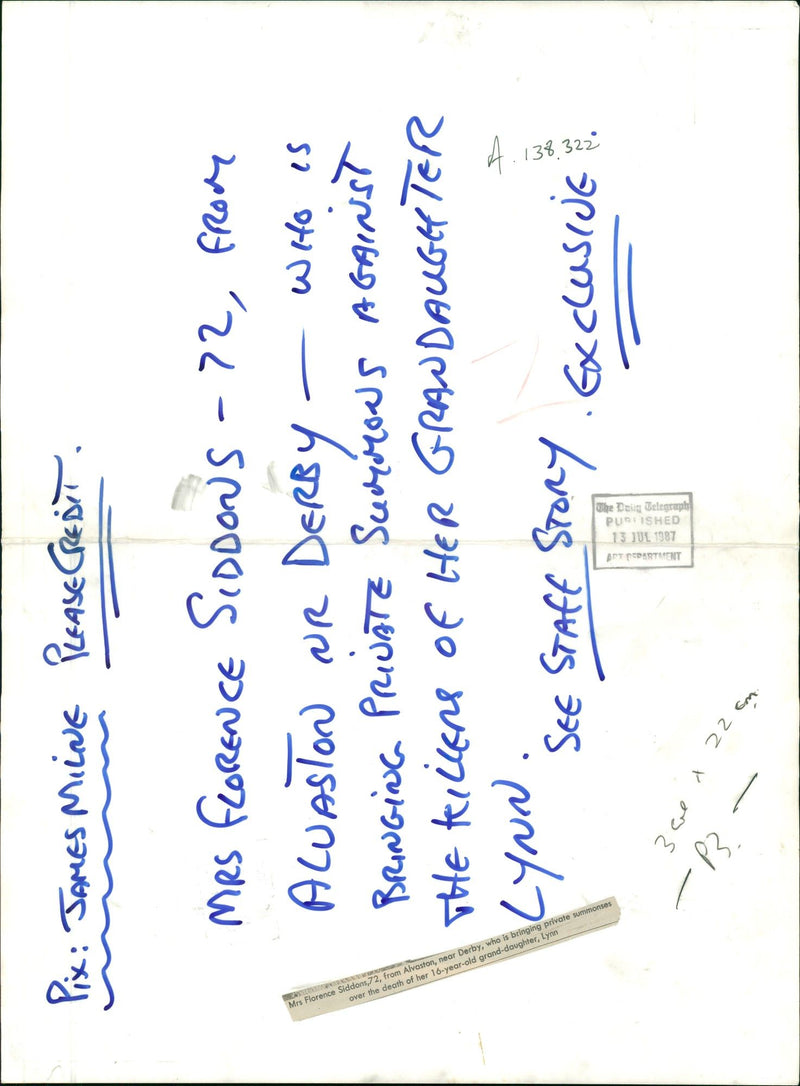 Pix: JAMES MILNE PLEASE CREDIT.
MRS FLORENCE SIDDONS - 72, FROM
ALVASTON NR DERBY — WHO IS
BRINGING PRIVATE SUMMONS AGAINST
THE KILLERS OF HER GRANDAUGHTER
LYNN.
SEE STAFF STORY . EXCLUSIVE.
A. 138.322.
The Daily Telegraph
PUBLISHED
13 JUL 1987
ART DEPARTMENT
3 col x 22 cm
— P3. —
Mrs Florence Siddons,72, from Alvaston, near Derby, who is bringing private summonses
over the death of her 16-year-old grand-daughter, Lynn